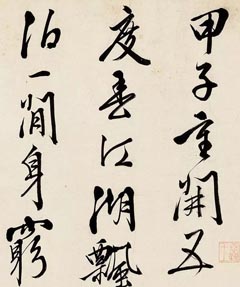 甲子重開五
度春江湖飄
泊一閒身窮